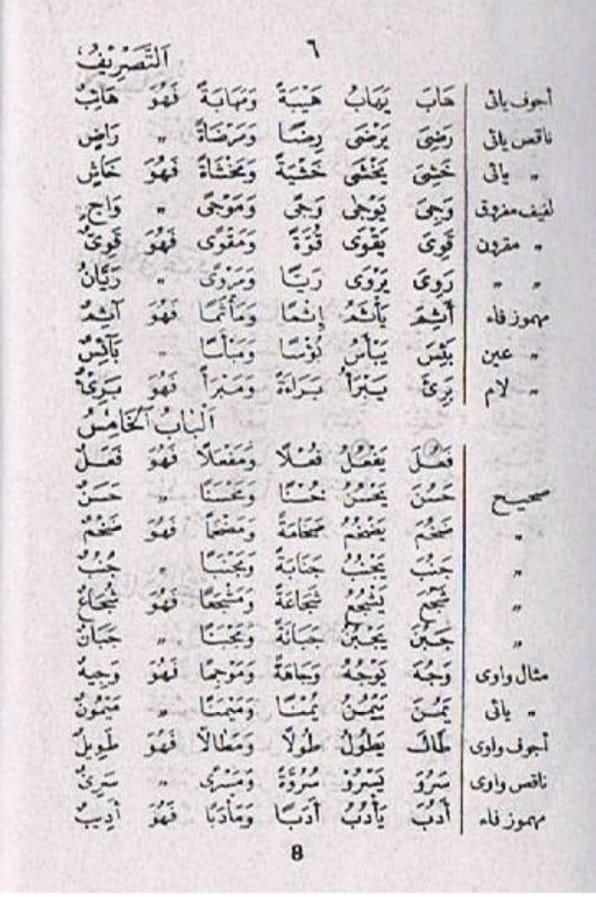 ٦
اَلتَّصْرِيْفُ
أجوف يائى هَابَ يَهَابُ هَيْبَةً وَمَهَابَةً فَهُوَ هَائِبٌ
ناقص يائى رَضِىَ يَرْضَى رِضًا وَمَرْضَاةً " رَاضٍ
" يائى خَشِىَ يَخْشَى خَشْيَةً وَمَخْشَاةً فَهُوَ خَاشٍ
لفيف مفروق وَجِىَ يَوْجَى وَجًى وَمَوْجًى " وَاجٍ
" مقرون قَوِىَ يَقْوَى قُوَّةً وَمَقْوًى فَهُوَ قَوِىٌّ
" " رَوِىَ يَرْوَى رَيًّا وَمَرْوًى " رَيَّانُ
مهموز فاء أَثِمَ يَأْثَمُ إِثْمًا وَمَأْثَمًا فَهُوَ آثِمٌ
" عين بَئِسَ يَبْأَسُ بُؤْسًا وَمَبْأَسًا " بَآئِسٌ
" لام بَرِئَ يَبْرَأُ بَرَاءَةً وَمَبْرَأً فَهُوَ بَرِىْءٌ
اَلْبَابُ الْخَامِسُ
فَعُلَ يَفْعُلُ فُعْلًا وَمَفْعَلًا فَهُوَ فَعَلٌ
صحيح حَسُنَ يَحْسُنُ حُسْنًا وَمَحْسَنًا " حَسَنٌ
" ضَخُمَ يَضْخُمُ ضَخَامَةً وَمَضْخَمًا فَهُوَ ضَخْمٌ
" جَنُبَ يَجْنُبُ جَنَابَةً وَمَجْنَبًا " جُنُبٌ
" شَجُعَ يَشْجُعُ شَجَاعَةً وَمَشْجَعًا فَهُوَ شُجَاعٌ
" جَبُنَ يَجْبُنُ جَبَانَةً وَمَجْبَنًا " جَبَانٌ
مثال واوى وَجُهَ يَوْجُهُ وَجَاهَةً وَمَوْجِهًا فَهُوَ وَجِيهٌ
" يائى يَمُنَ يَيْمُنُ يُمْنًا وَمَيْمَنًا " مَيْمُونٌ
أجوف واوى طَالَ يَطُولُ طُولًا وَمَطَالًا فَهُوَ طَوِيلٌ
ناقص واوى سَرُوَ يَسْرُوْ سُرُوَّةً وَمَسْرًى " سَرِىٌّ
مهموز فاء أَدُبَ يَأْدُبُ أَدَبًا وَمَأْدَبًا فَهُوَ أَدِيبٌ
8